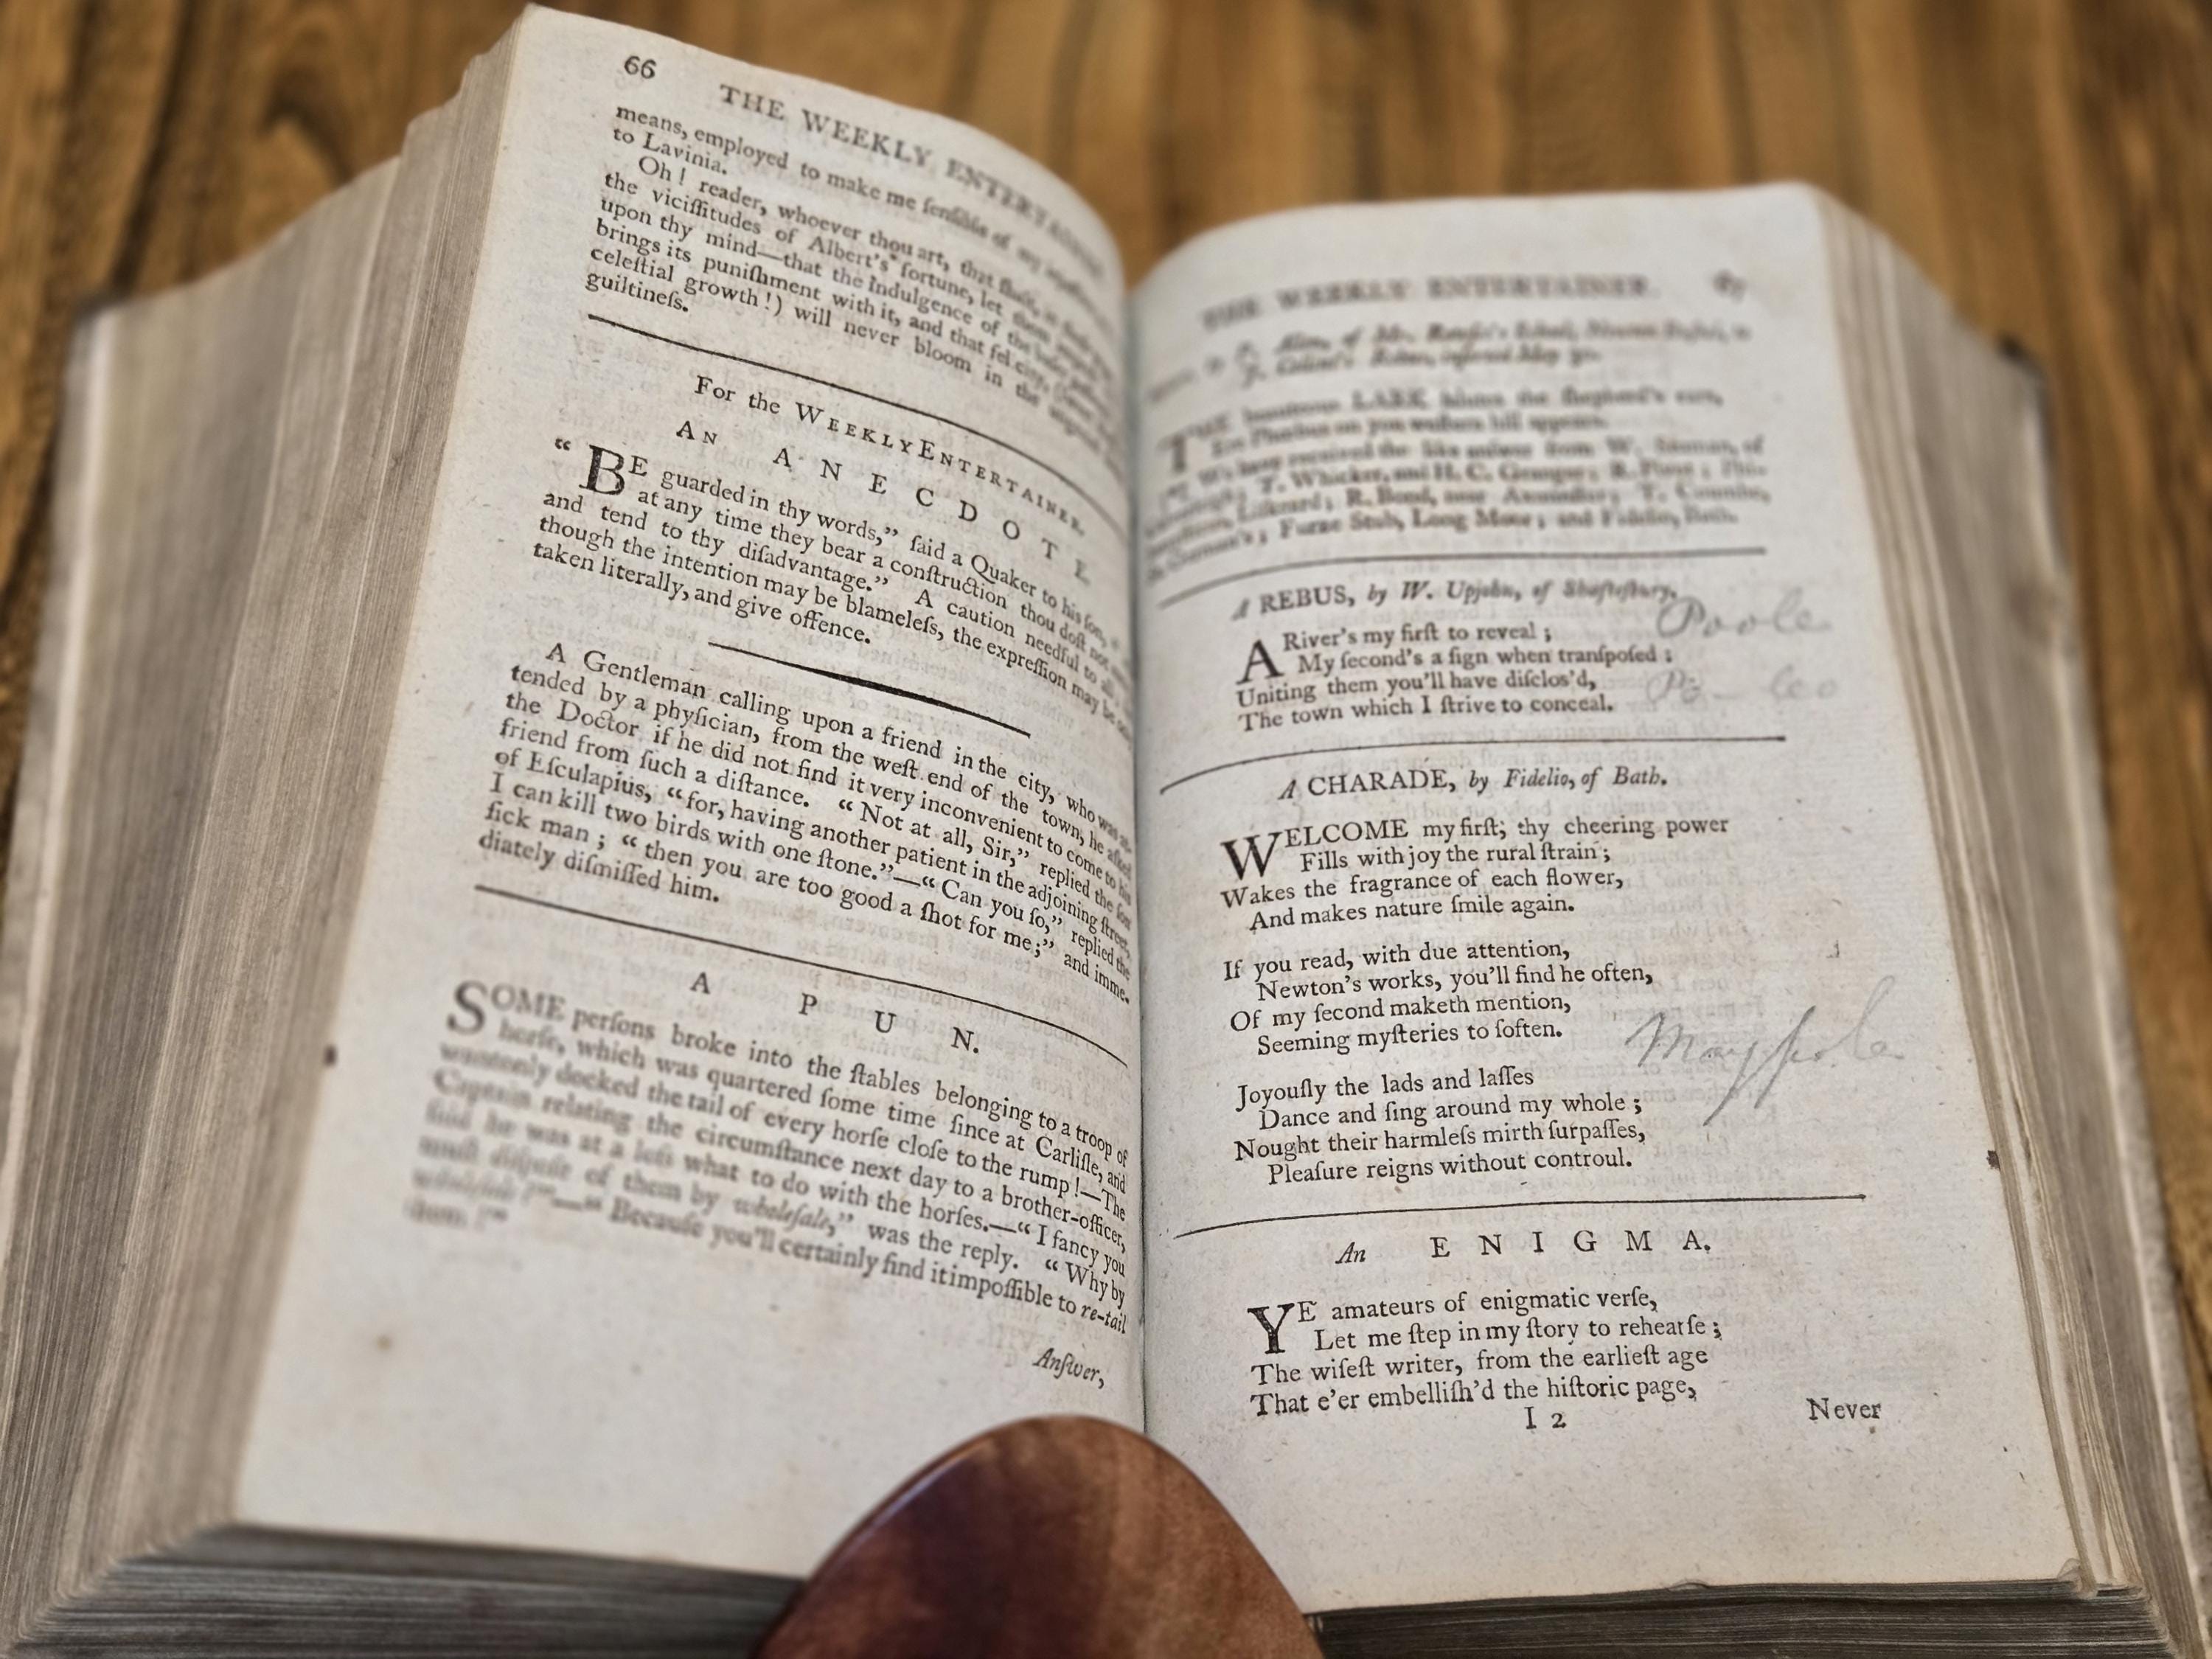 66 THE WEEKLY ENTERTAINER.
means, employed to make me ſenſible of my
to Lavinia.
Oh ! reader, whoever thou art, that ſhalt,
the viciſſitudes of Albert's fortune, let them
upon thy mind—that the Indulgence of the
brings its puniſhment with it, and that felicity,
celeſtial growth!) will never bloom in the
guiltineſs.
For the WEEKLY ENTERTAINER.
AN ANECDOTE.
“ BE guarded in thy words,” ſaid a Quaker to his ſon,
at any time they bear a conſtruction thou doſt not
and tend to thy diſadvantage.” A caution needful to all,
though the intention may be blameleſs, the expreſſion may be
taken literally, and give offence.
A Gentleman calling upon a friend in the city, who was at-
tended by a phyſician, from the weſt end of the town, he aſked
the Doctor if he did not find it very inconvenient to come to his
friend from ſuch a diſtance. “ Not at all, Sir,” replied the ſon
of Eſculapius, “for, having another patient in the adjoining ſtreet,
I can kill two birds with one ſtone.”—“ Can you ſo,” replied the
ſick man ; “ then you are too good a ſhot for me;” and imme-
diately diſmiſſed him.
A PUN.
SOME perſons broke into the ſtables belonging to a troop of
horſe, which was quartered ſome time ſince at Carliſle, and
wantonly docked the tail of every horſe cloſe to the rump !—The
Captain relating the circumſtance next day to a brother-officer,
ſaid he was at a loſs what to do with the horſes.—“ I fancy you
muſt diſpoſe of them by wholeſale,” was the reply. “ Why by
wholeſale ?”—“ Becauſe you'll certainly find it impoſſible to re-tail
them !”
Anſwer,
THE WEEKLY ENTERTAINER. 67
of Mr. School,
Rebus, inſerted May
THE LARK the ſhepherd's
Phœbus on yon hill appears.
We have received the like anſwer from W. of
T. Whicker, and H. C. R.
R. Bond, near T.
Furze Stub, Long Moor ; and Fidelio, Bath.
A REBUS, by W. Upjohn, of Shafteſbury.
Poole
A River's my firſt to reveal ;
My ſecond's a ſign when tranſpoſed :
Uniting them you'll have diſclos'd,
Po — leo
The town which I ſtrive to conceal.
A CHARADE, by Fidelio, of Bath.
WELCOME my firſt; thy cheering power
Fills with joy the rural ſtrain ;
Wakes the fragrance of each flower,
And makes nature ſmile again.
If you read, with due attention,
Newton's works, you'll find he often,
Of my ſecond maketh mention,
Seeming myſteries to ſoften.
Maypole
Joyouſly the lads and laſſes
Dance and ſing around my whole ;
Nought their harmleſs mirth ſurpaſſes,
Pleaſure reigns without controul.
An ENIGMA.
YE amateurs of enigmatic verſe,
Let me ſtep in my ſtory to rehearſe ;
The wiſeſt writer, from the earlieſt age
That e'er embelliſh'd the hiſtoric page,
I 2 Never